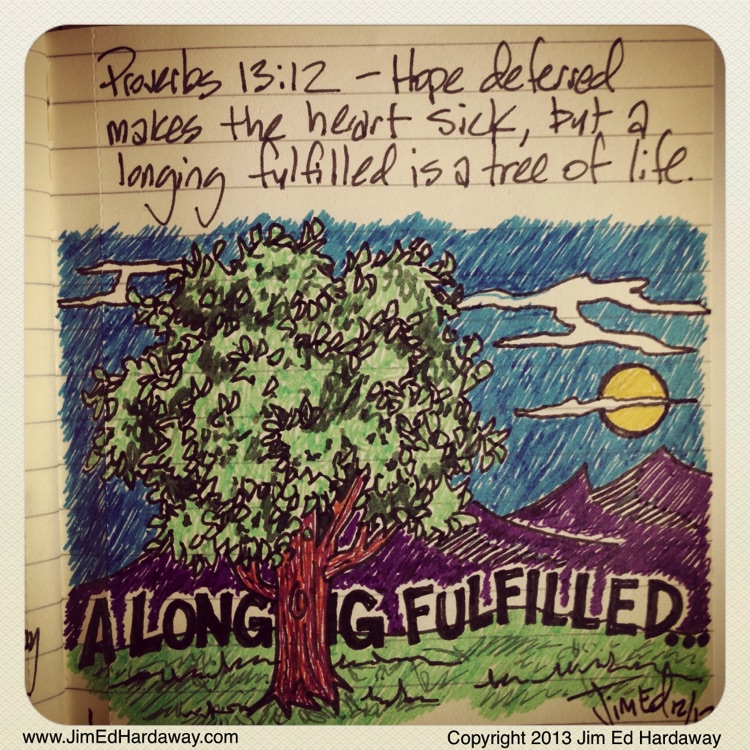 Proverbs 13:12 - Hope deferred
makes the heart sick, but a
longing fulfilled is a tree of life.
A LONG IG FULFILLED...
Jim Ed 12/
www.JimEdHardaway.com
Copyright 2013 Jim Ed Hardaway